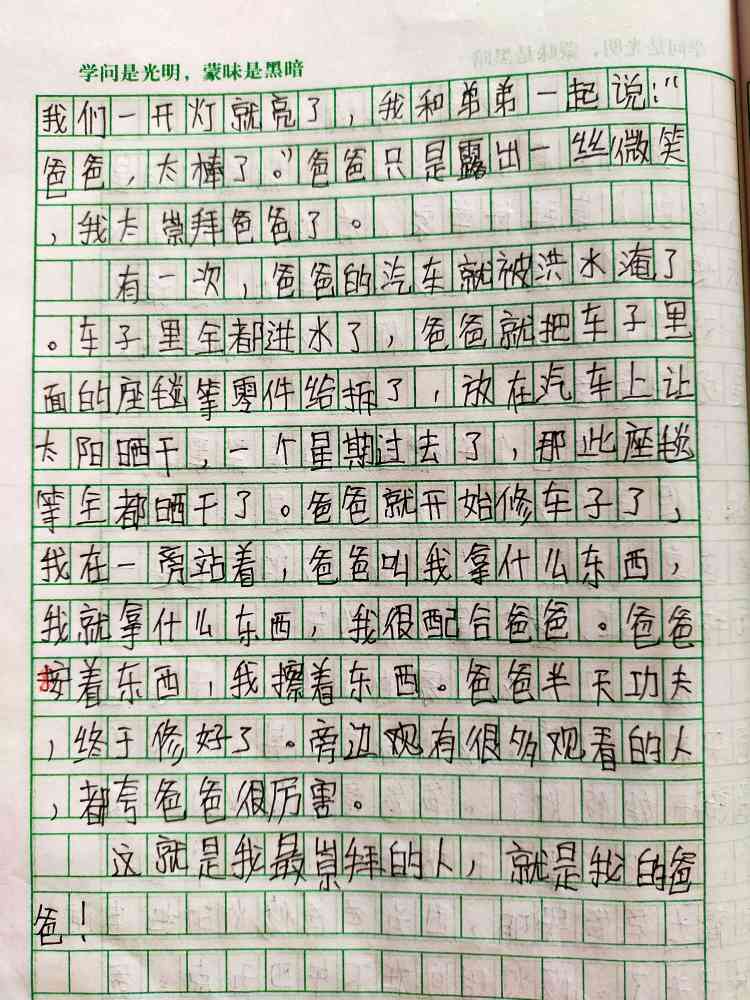 学问是光明，蒙昧是黑暗
我们一开灯就亮了，我和弟弟一起说：“
爸爸，太棒了。”爸爸只是露出一丝微笑
，我太崇拜爸爸了。
有一次，爸爸的汽车就被洪水淹了
。车子里全都进水了，爸爸就把车子里
面的座毯等零件给拆了，放在汽车上让
太阳晒干，一个星期过去了，那些座毯
等全都晒干了。爸爸就开始修车子了，
我在一旁站着，爸爸叫我拿什么东西，
我就拿什么东西，我很配合爸爸。爸爸
按着东西，我擦着东西。爸爸半天功夫
，终于修好了。旁边观有很多观看的人
，都夸爸爸很厉害。
这就是我最崇拜的人，就是我的爸
爸！